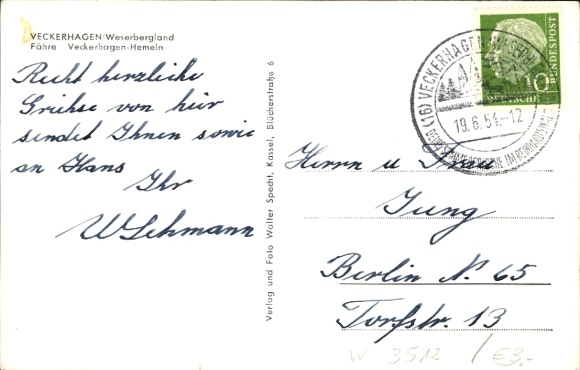 VECKERHAGEN/Weserbergland
Fähre Veckerhagen-Hemeln
Recht herzliche
Grüße von hier
sendet Ihnen sowie
an Hans
Ihr
W Lehmann
Verlag und Foto Walter Specht, Kassel, Blücherstraße 6
(16) VECKERHAGEN
19.6.54.-12
10
DEUTSCHE
BUNDESPOST
Herrn u Frau
Jung
Berlin N. 65
Torfstr. 13
W 3512 / €3.-